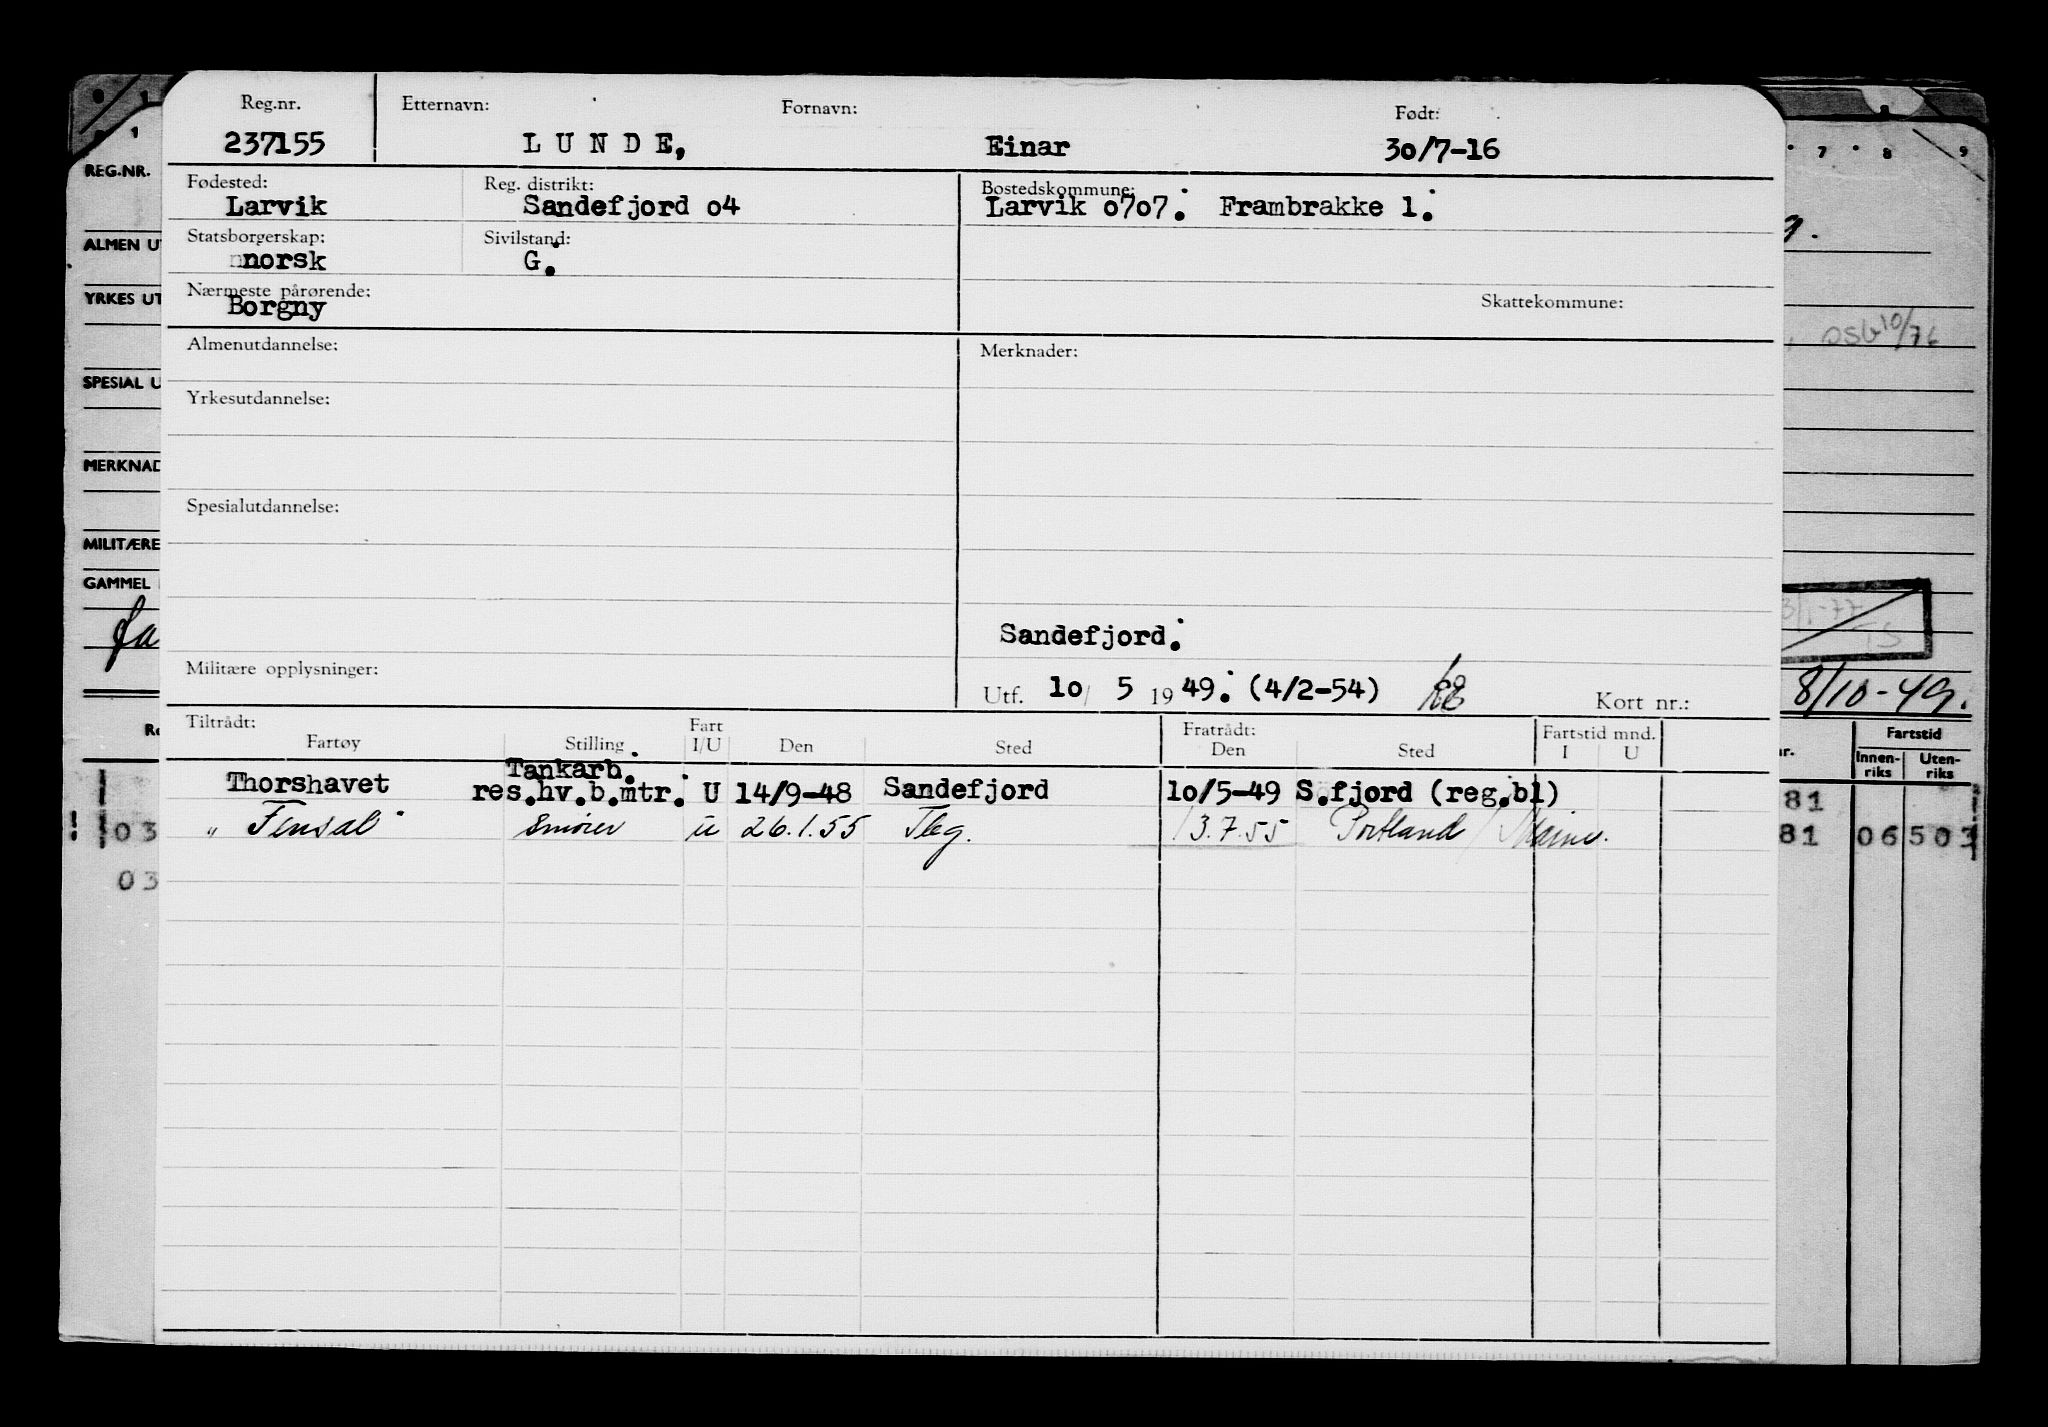 Reg.nr. Etternavn: Fornavn: Født:
237155 LUNDE, Einar 30/7-16
REG.NR.
Fødested: Reg. distrikt: Bostedskommune:
Larvik Sandefjord o4 Larvik o7o7. Frambrakke 1.
ALMEN UT
Statsborgerskap: Sivilstand:
nnorsk G.
YRKES UT
Nærmeste pårørende: Skattekommune:
Borgny
OSL 10/76
Almenutdannelse: Merknader:
SPESIAL U
Yrkesutdannelse:
MERKNAD
Spesialutdannelse:
MILITÆRE
GAMMEL
3/1-77
TS
Sandefjord.
Militære opplysninger:
Utf. 10/ 5 1949. (4/2-54) Kort nr.:
8/10-49.
Tiltrådt: Fart Fratrådt: Fartstid mnd.
Fartøy Stilling I/U Den Sted Den Sted I U
nr. Fartstid
Innen-riks Uten-riks
Tankarb.
Thorshavet res.hv.b.mtr. U 14/9-48 Sandefjord 10/5-49 S.fjord (reg.bl)
81
" Fensal " Smører u 26.1.55 Tbg. 3.7.55 Portland / Maine.
03 81 06 503
03